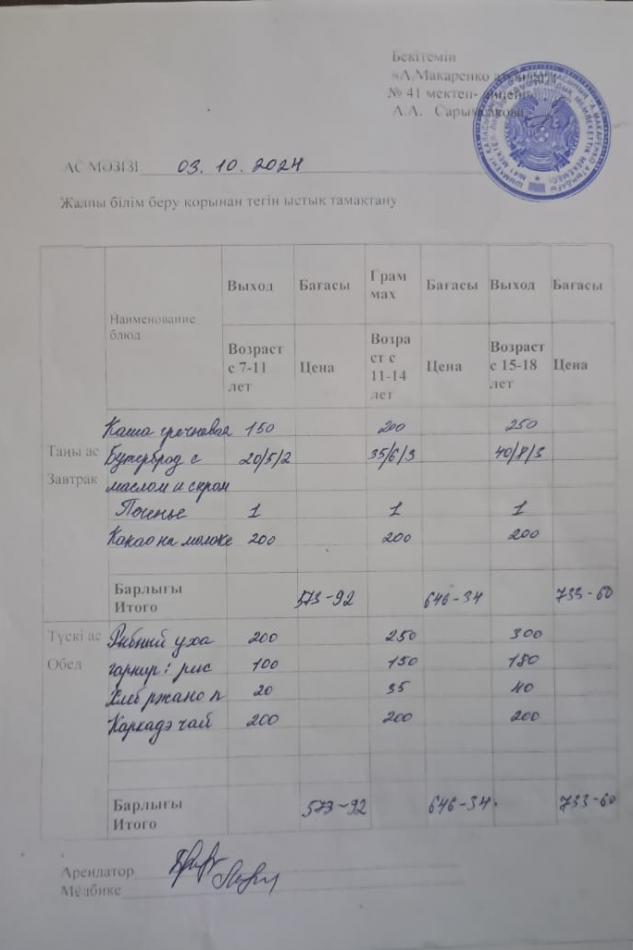 Бекітемін
«А.Макаренко
№ 41 мектеп-
А.А.
АС МӘЗІЗІ 03. 10. 2024
Жалпы білім беру қорынан тегін ыстық тамақтану
Наименование блюд
Выход Бағасы Грам мах Бағасы Выход Бағасы
Возраст с 7-11 лет Цена Возра ст с 11-14 лет Цена Возраст с 15-18 лет Цена
Каша гречневая 150 200 250
Таңы ас Бутерброд с 20/5/2 35/6/3 40/8/3
Завтрак маслом и сыром
Печенье 1 1 1
Какао на молоке 200 200 200
Барлығы Итого 573-92 646-34 733-60
Түскі ас Рибный уха 200 250 300
Обел гарнир: рис 100 150 180
Хлеб ржано п 20 35 40
Каркадэ чай 200 200 200
Барлығы Итого 573-92 646-34 733-60
Арендатор
Медбике